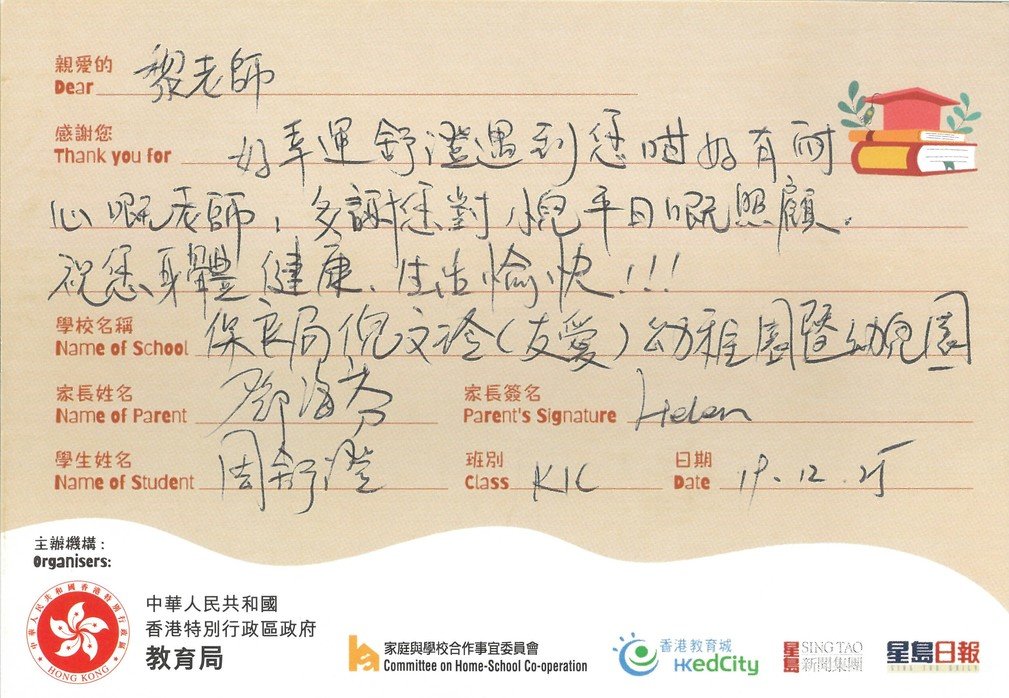 親愛的
Dear 黎老師
感謝您
Thank you for 好幸運舒澄遇到您咁好有耐
心嘅老師，多謝您對小兒平日嘅照顧。
祝您身體健康、生活愉快!!!
學校名稱
Name of School 保良局倪文玲(友愛)幼稚園暨幼兒園
家長姓名 家長簽名
Name of Parent 鄧海芬 Parent's Signature Helen
學生姓名 班別 日期
Name of Student 周舒澄 Class K1C Date 19.12.25
主辦機構：
Organisers:
中華人民共和國香港特別行政區
HONG KONG
中華人民共和國
香港特別行政區政府
教育局
家庭與學校合作事宜委員會
Committee on Home-School Co-operation
香港教育城
HKedCity
星島 SING TAO
新聞集團
星島日報